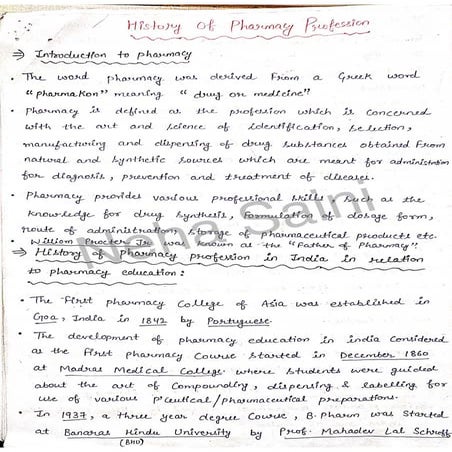 History Of Pharmacy Profession
⇒ Introduction to pharmacy
• The word pharmacy was derived From a Greek word
"pharmakon" meaning "drug or medicine"
• Pharmacy is defined as the profession which is concerned
with the art and science of identification, selection,
manufacturing and dispensing of drug substances obtained From
natural and synthetic sources which are meant for administration
for diagnosis, prevention and treatment of diseases.
• Pharmacy provides various professional skills, such as the
knowledge for drug synthesis, Formulation of dosage form,
route of administration, storage of pharmaceutical products etc.
• William Procter Jr. was known as the "Father of Pharmacy"
⇒ History of pharmacy profession in India in relation
to pharmacy education:
• The First pharmacy College of Asia was established in
Goa, India in 1842 by Portuguese.
• The development of pharmacy education in india Considered
as the First pharmacy Course started in December 1860
at Madras Medical College. where students were guided
about the art of Compounding, dispensing & labelling for
use of various p'ceutical/pharmaceutical preparations.
• In 1937, a three year degree Course, B.Pharm was Started
at Banaras Hindu University by Prof. Mahadev Lal Schroff
(BHU)
Neha Saini